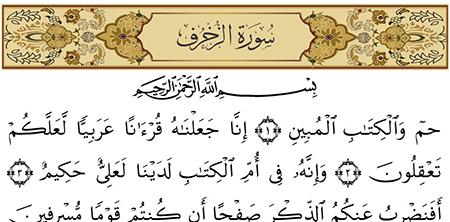 سُورَةُ الزُّخْرُفِ
بِسْمِ ٱللَّهِ ٱلرَّحْمَٰنِ ٱلرَّحِيمِ
حمٓ وَٱلْكِتَٰبِ ٱلْمُبِينِ ﴿١﴾ إِنَّا جَعَلْنَٰهُ قُرْءَٰنًا عَرَبِيًّا لَّعَلَّكُمْ
تَعْقِلُونَ ﴿٢﴾ وَإِنَّهُۥ فِىٓ أُمِّ ٱلْكِتَٰبِ لَدَيْنَا لَعَلِىٌّ حَكِيمٌ ﴿٣﴾
أَفَنَضْرِبُ عَنكُمُ ٱلذِّكْرَ صَفْحًا أَن كُنتُمْ قَوْمًا مُّسْرِفِينَ